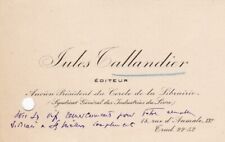 Jules Tallandier
ÉDITEUR
Ancien Président du Cercle de la Librairie
(Syndicat Général des Industries du Livre)
vifs remerciements pour votre aimable
15, rue d'Aumale, IXe
compliments
Trud. 27-52